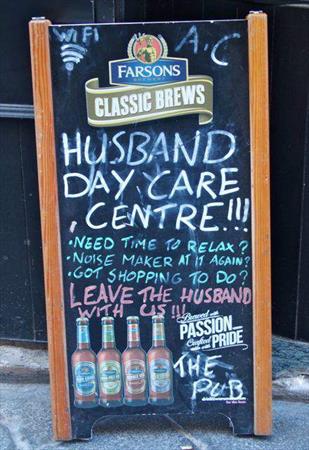 WiFi
A.C
FARSONS
BREWERY
CLASSIC BREWS
HUSBAND
DAY CARE
CENTRE!!!
•NEED TIME TO RELAX?
•NOISE MAKER AT IT AGAIN?
•GOT SHOPPING TO DO?
LEAVE THE HUSBAND
WITH US!!!
Brewed with
PASSION
Crafted with
PRIDE
THE
PUB